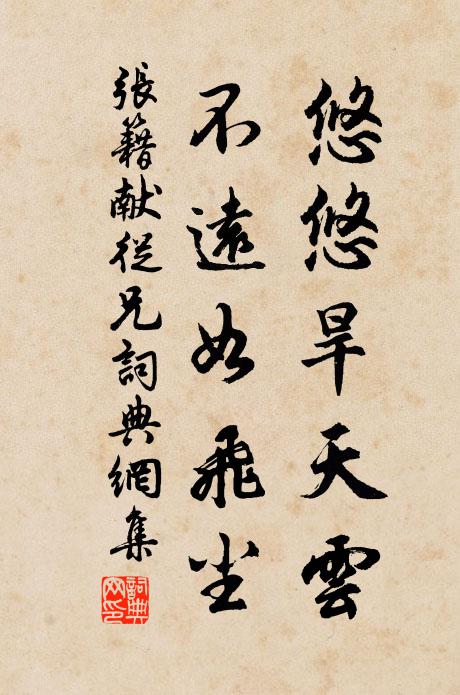 悠悠旱天雲
不遠如飛塵
張籍献從兄詞典網集
詞典網印